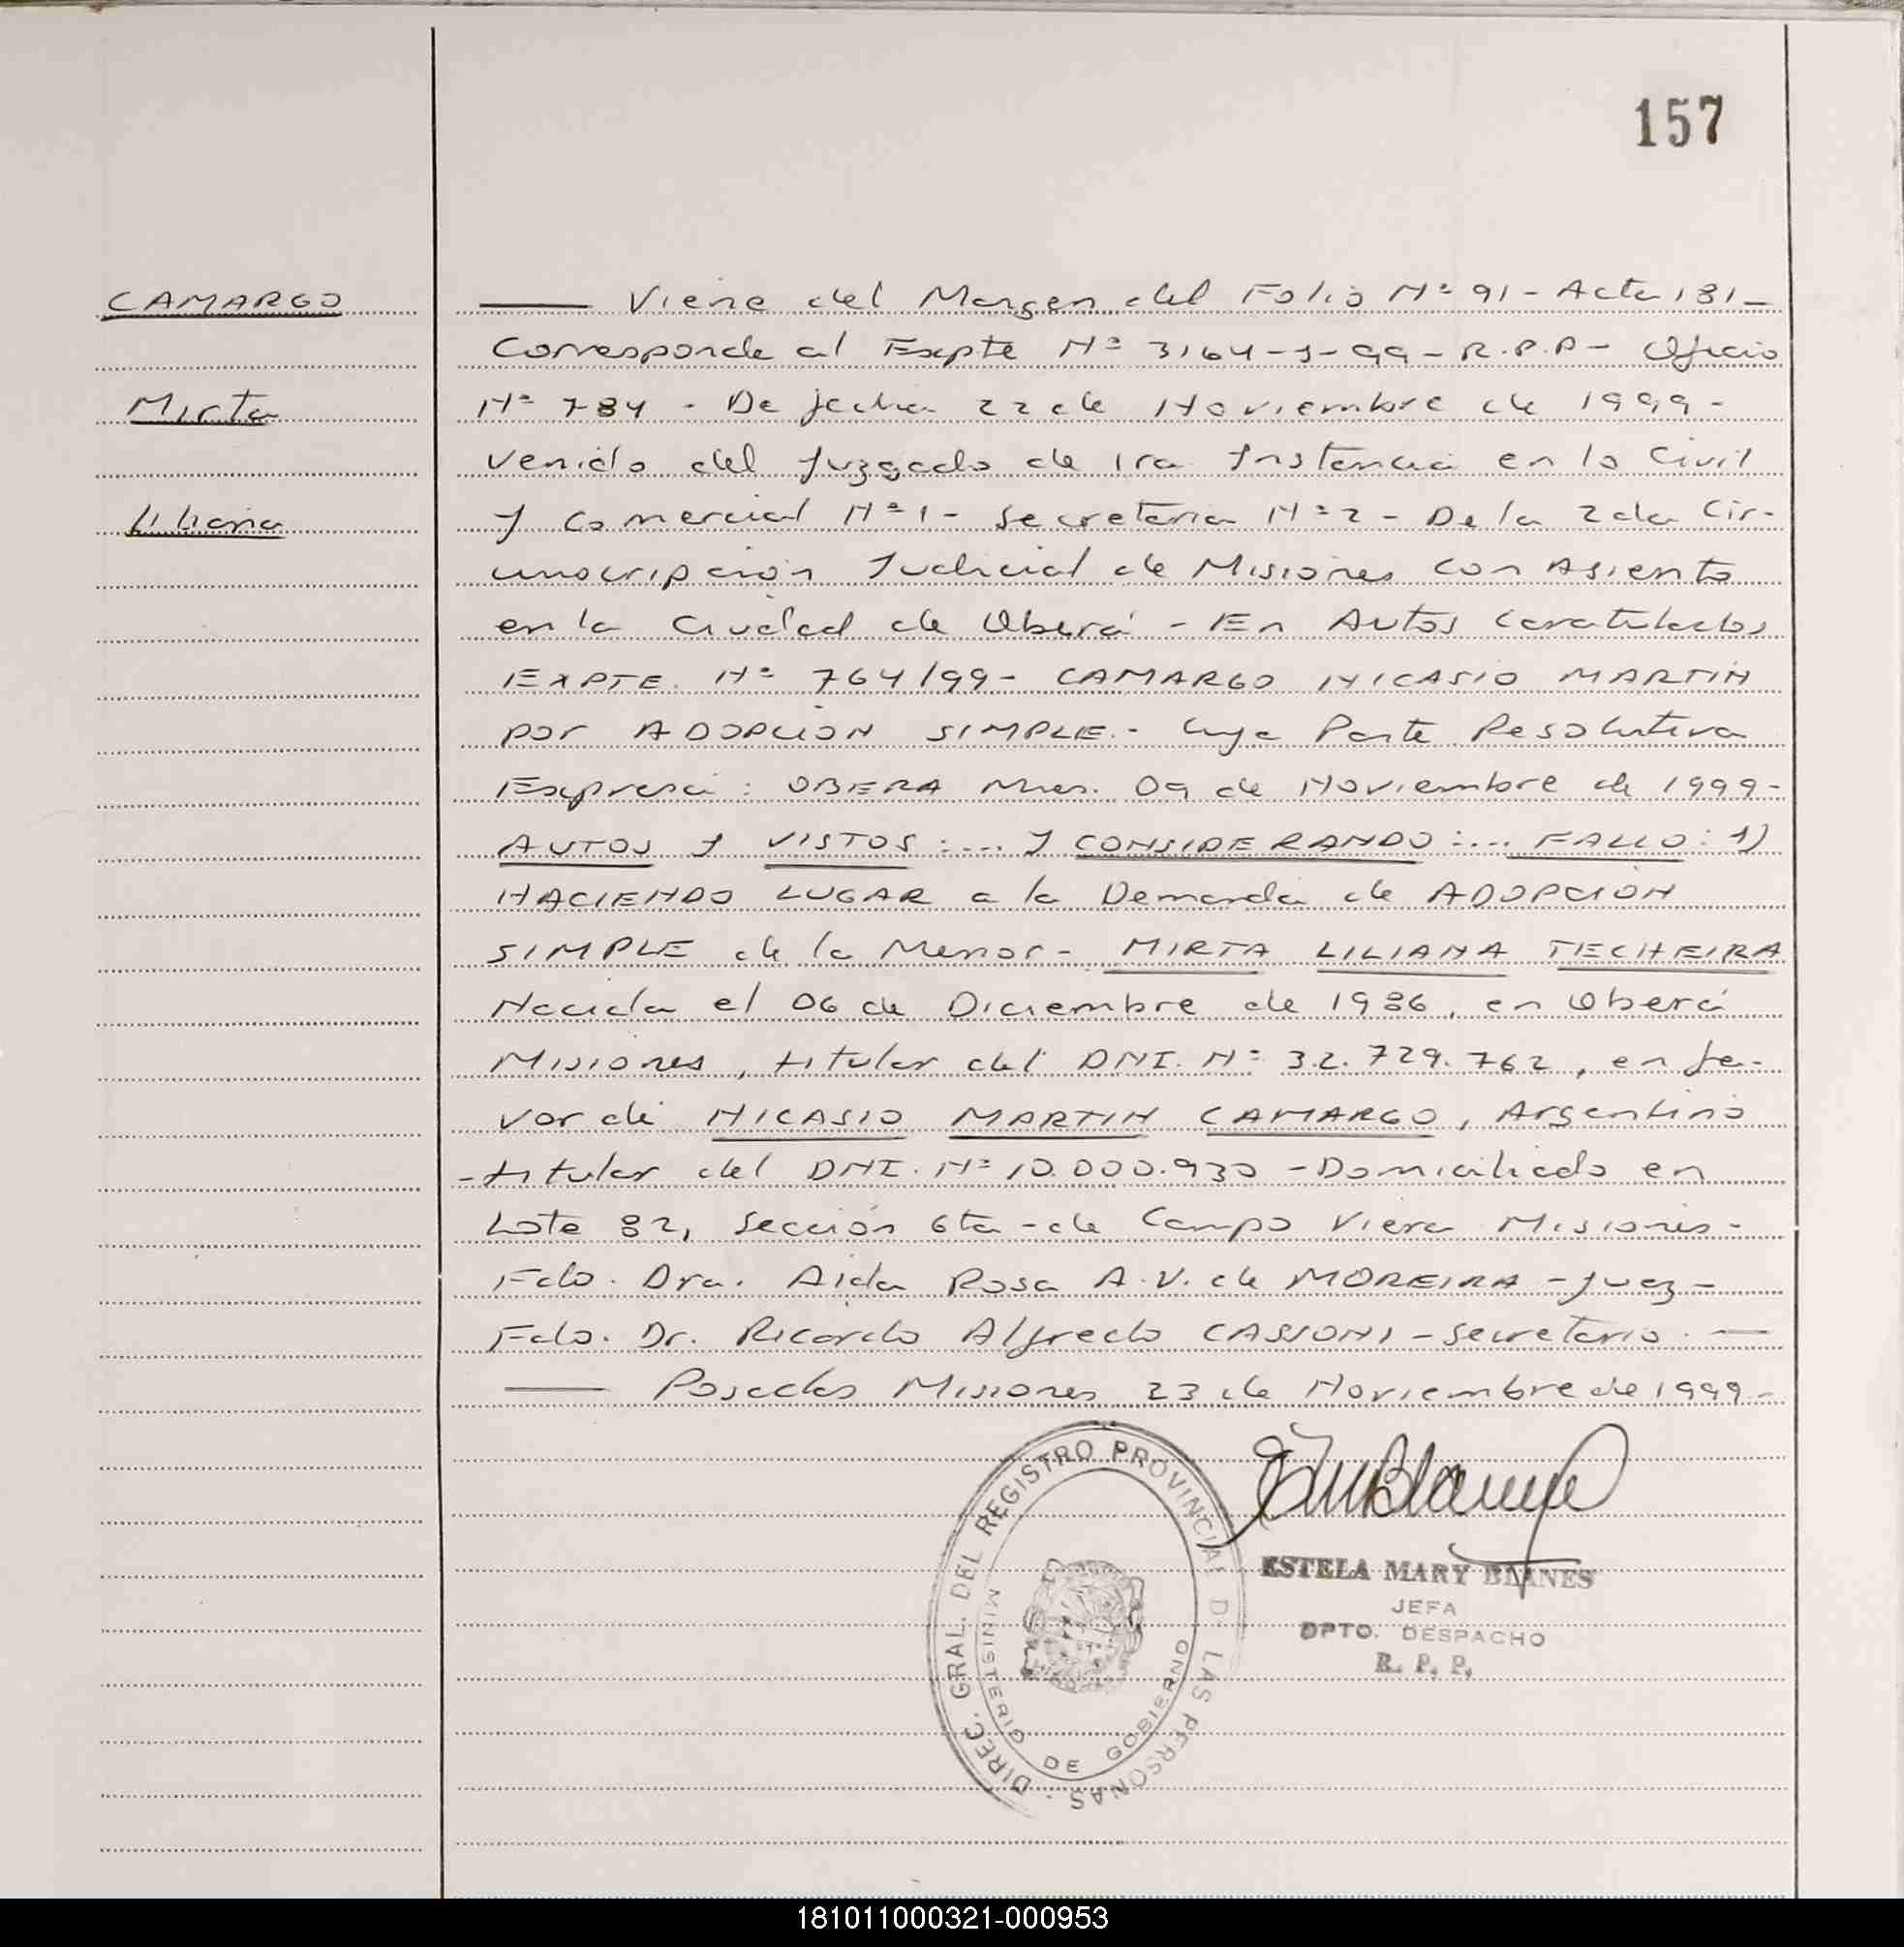 157
CAMARGO
Mirta
Liliana
Viene del Margen del Folio Nº 91 - Acta 181 -
Corresponde al Expte Nº 3164-J-99 - R.P.P - Oficio
Nº 784 - De fecha 22 de Noviembre de 1999 -
venido del Juzgado de 1ra Instancia en lo Civil
y Comercial Nº 1 - Secretaria Nº 2 - De la 2da Cir-
cunscripción Judicial de Misiones con Asiento
en la Ciudad de Oberá - En Autos Caratulados
EXPTE. Nº 764/99 - CAMARGO NICASIO MARTIN
por ADOPCION SIMPLE.- Cuya Parte Resolutiva
Expresa: OBERA Mnes. 09 de Noviembre de 1999 -
AUTOS Y VISTOS:.... Y CONSIDERANDO:.... FALLO: 1)
HACIENDO LUGAR a la Demanda de ADOPCION
SIMPLE de la Menor - MIRTA LILIANA TECHEIRA
Nacida el 06 de Diciembre de 1986, en Oberá
Misiones, titular del DNI. Nº 32.729.762, en fa-
vor de NICASIO MARTIN CAMARGO, Argentino
- titular del DNI. Nº 10.000.930 - Domiciliado en
Lote 82, Sección 6ta - de Campo Viera Misiones -
Fdo. Dra. Aida Rosa A.V. de MOREIRA - Juez -
Fdo. Dr. Ricardo Alfredo CASSONI - Secretario.
Posadas Misiones 23 de Noviembre de 1999 -
DIREC. GRAL. DEL REGISTRO PROVINCIAL DE LAS PERSONAS
MINISTERIO DE GOBIERNO
ESTELA MARY BLANES
JEFA
DPTO. DESPACHO
R. P. P.
181011000321-000953